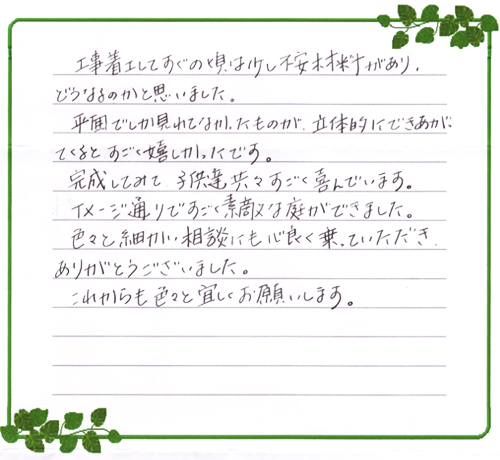 工事着工してすぐの頃は少し不安材料があり、
どうなるのかと思いました。
平面でしか見れてなかったものが、立体的にできあがっ
てくるとすごく嬉しかったです。
完成してみて、子供達共々すごく喜んでいます。
イメージ通りですごく素敵な庭ができました。
色々と細かい相談にも心良く乗っていただき、
ありがとうございました。
これからも色々と宜しくお願いします。